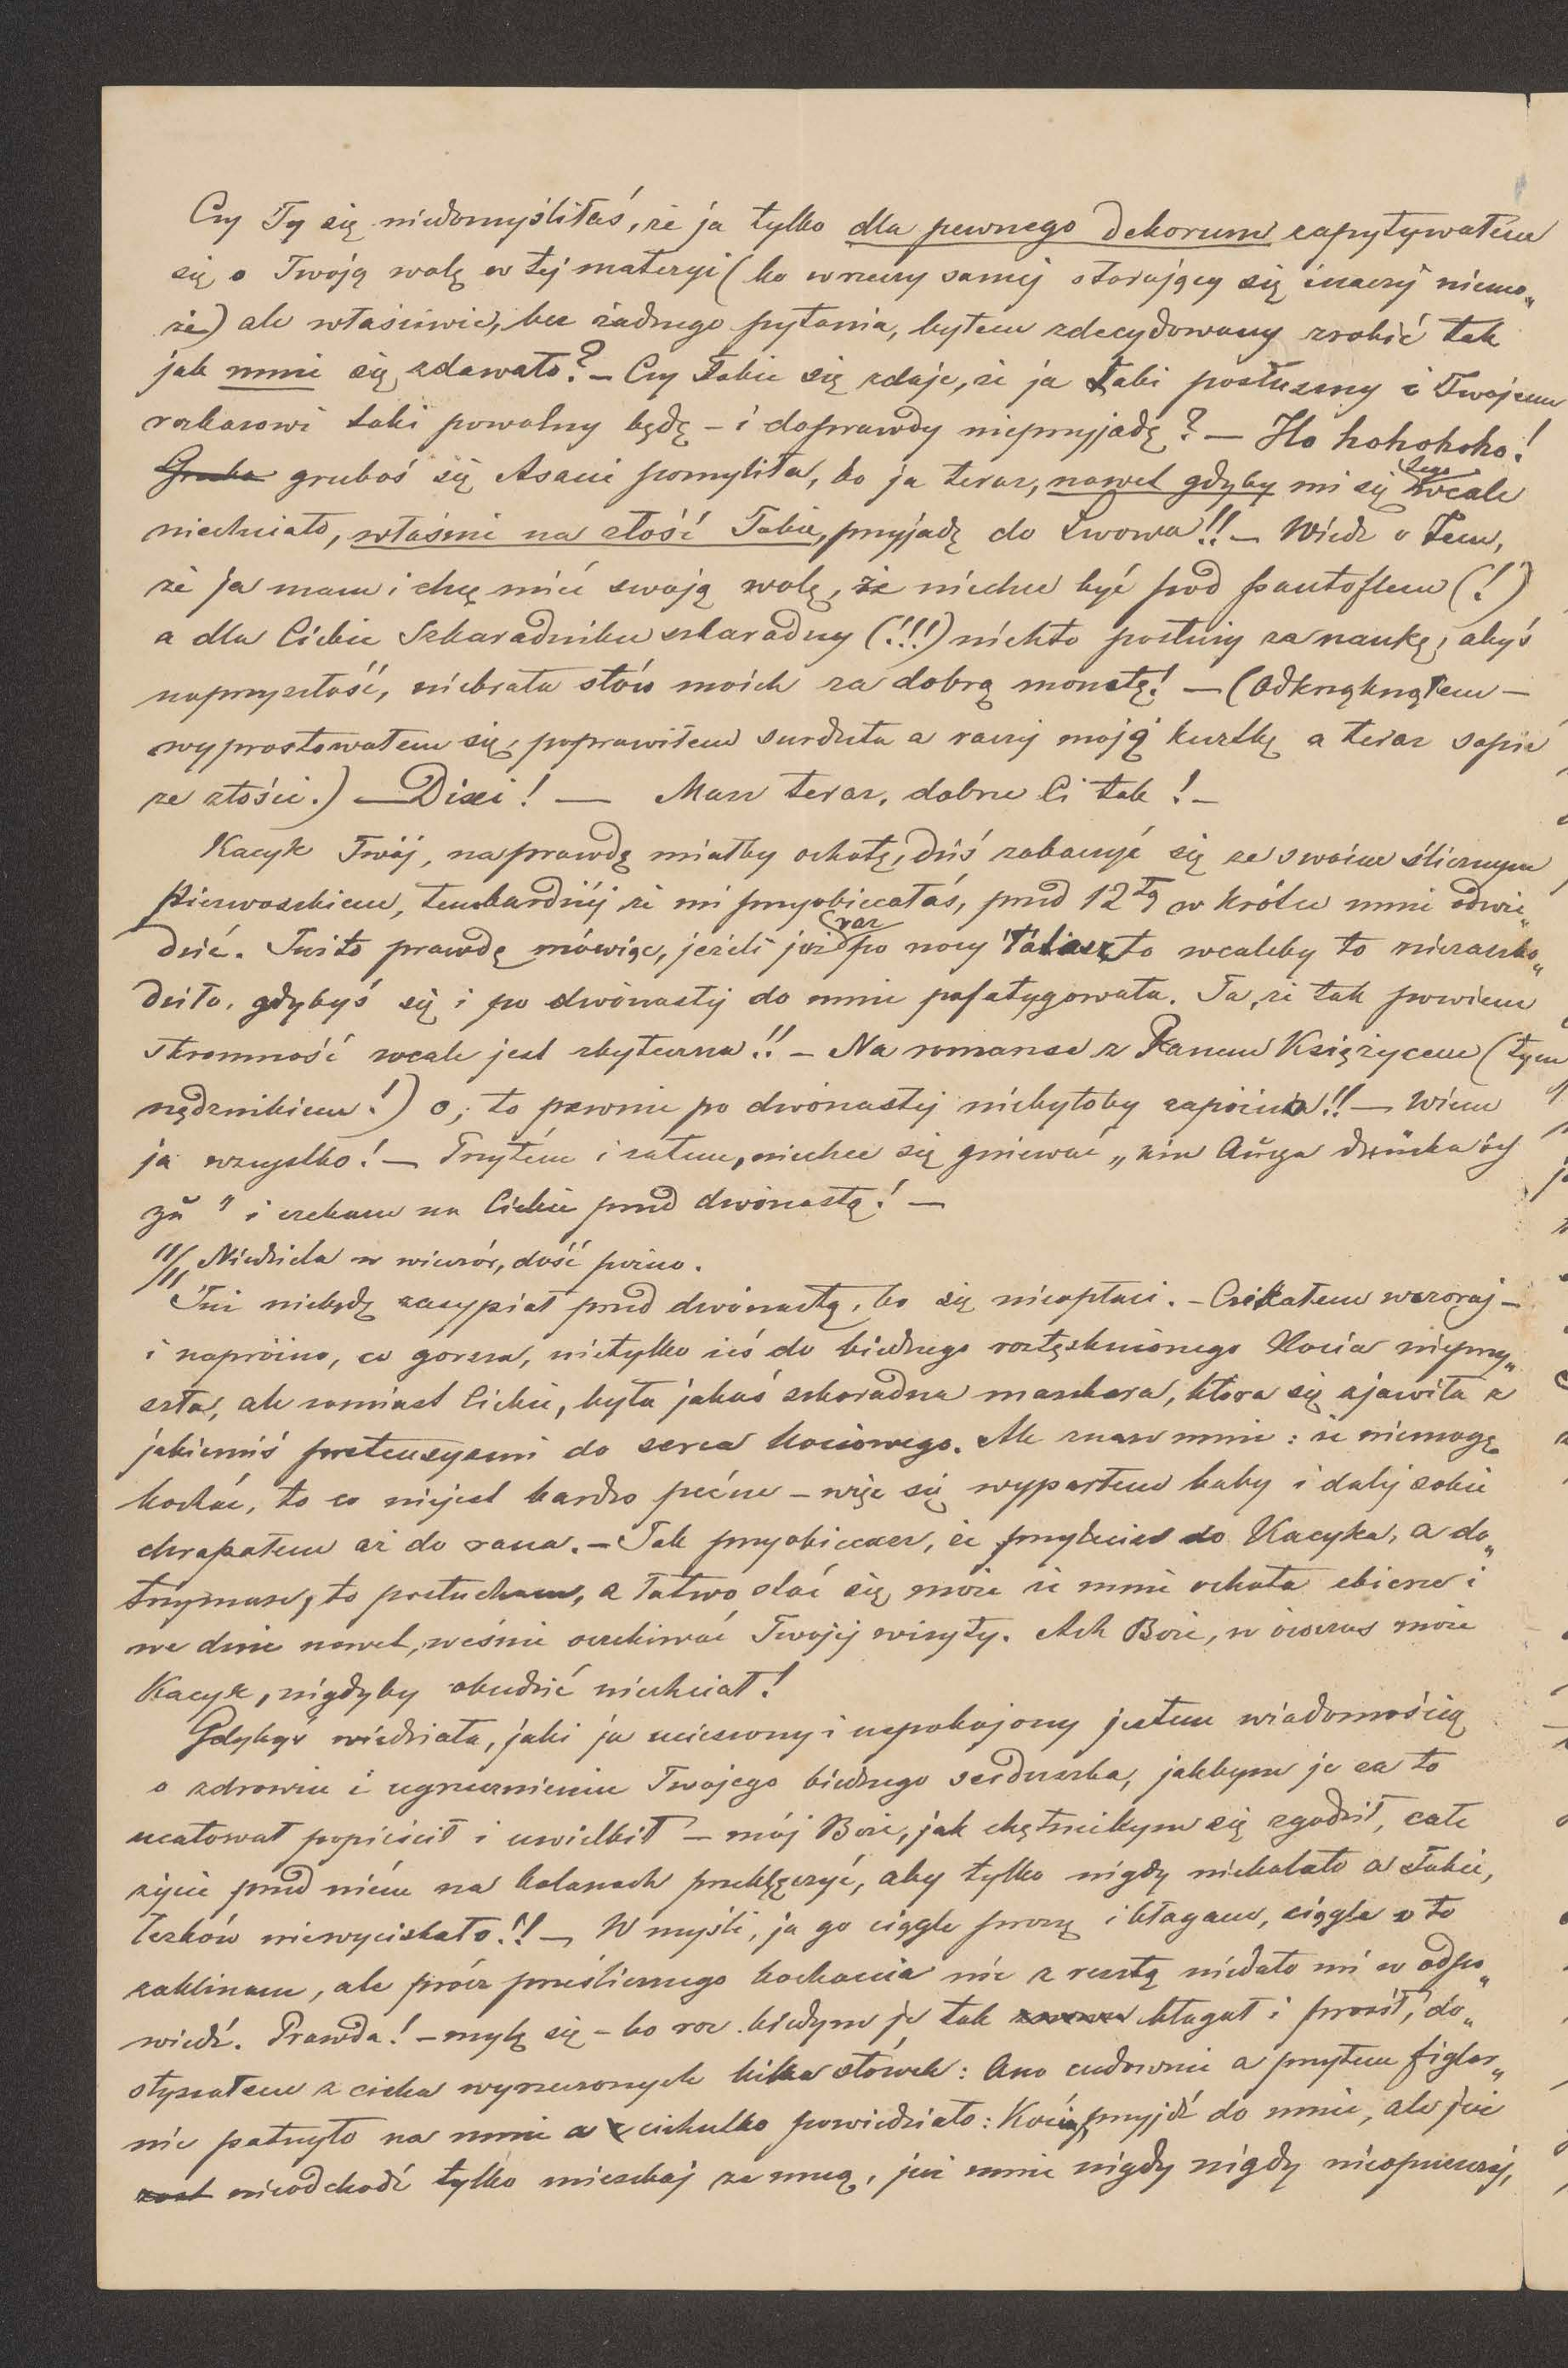 Czy Ty się niedomyśliłaś, że ja tylko dla pewnego dekorum zapytywałem
się o Twoją wolę w tej materyi (bo w rzeczy samej starający się inaczej niemo„
że) ale właściwie, bez żadnego pytania, byłem zdecydowany zrobić tak
jak mnie się zdawało? – Czy Tobie się zdaje, że ja taki posłuszny i Twojemu
rozkazowi taki powolny będę – i doprawdy nieprzyjadę? – Ho hohohoho!
Grubo gruboś się Asani pomyliła, bo ja teraz, nawet gdyby mi się tego wcale
niechciało, właśnie na złość Tobie, przyjadę do Lwowa!! – Wiedz o tem,
że ja mam i chcę mieć swoją wolę, że niechcę być pod pantoflem (!)
a dla Ciebie Szkaradniku szkaradny (!!!) niechto posłuży za naukę, abyś
naprzyszłość, niebrała słów moich za dobrą monetę! – (Odkrząknąłem –
wyprostowałem się, poprawiłem surduta a raczej moją kurtkę a teraz sapię
ze złości.) – Dixi! – Masz teraz, dobrze Ci tak! –
Kacyk Twój, naprawdę miałby ochotę, dziś zobaczyć się ze swoim ślicznym
Pierwoszkiem, tembardziej że mi przyobiecałaś, przed 12tą w krótce mnie odwie„
dzić. Jużto prawdę mówiąc, jeżeli już raz po nocy to wcaleby to niezaszko„
dziło, gdybyś się i po dwónastej do mnie pofatygowała. Ta, że tak powiem
skromność wcale jest zbyteczna!! – Na romanse z Panem Księżycem (tym
nędznikiem!) o, to pewnie po dwónastej niebyłoby zapóźno!! – Wiem
ja wszystko! – Przytém i zatem, niechcę się gniewać „ein Auge drücke ich
zu" i czekam na Ciebie przed dwónastą! –
11/11 Niedziela w wieczór, dość późno.
Już niebędę zasypiał przed dwónastą, bo się nieopłaci. – Czekałem wczoraj –
i napróżno, co gorsza, nietylko żeś do biednego roztęsknionego Kocia nieprzy„
szła, ale zamiast Ciebie, była jakaś szkaradna maszkara, która się zjawiła z
jakiemiś pretensyami do serca kociowego. Ale znasz mnie: że niemogę
kochać, to co niejest bardzo pięcne – więc się wyparłem baby i dalej sobie
chrapałem aż do rana. – Jak przyobiecasz, że przylecisz do Kacyka, a do„
trzymasz, to posłucham, a łatwo stać się może że mnie ochota zbierze i
we dnie nawet, weśnie oczekiwać Twojej wizyty. Ach Boże, w ówczas może
Kacyk, nigdyby obudzić niechciał!
Gdybyś wiedziała, jaki ja ucieszony i uspokojony jestem wiadomością
o zdrowiu i ugrzecznieniu Twojego biednego serduszka, jakbym je za to
ucałował popieścił i uwielbił – mój Boże, jak chętniebym się zgodził, całe
życie przed niém na kolanach przeklęczyć, aby tylko nigdy niebolało a Tobie,
łezków niewyciskało!! – W myśli, ja go ciągle proszę i błagam, ciągle o to
zaklinam, ale prócz prześlicznego kochania nic z resztą niedało mi w odpo„
wiedź. Prawda! – mylę się – bo raz kiedym je tak błagał i prosił, do„
słyszałem z cicha wyrzeczonych kilka słówek: Ono cudownie a przytem figlar„
nie patrzyło na mnie a cichutko powiedziało: Kociu, przyjdź do mnie, ale już
nieodchodź tylko mieszkaj ze mną, już mnie nigdy nigdy nieopuszczaj,